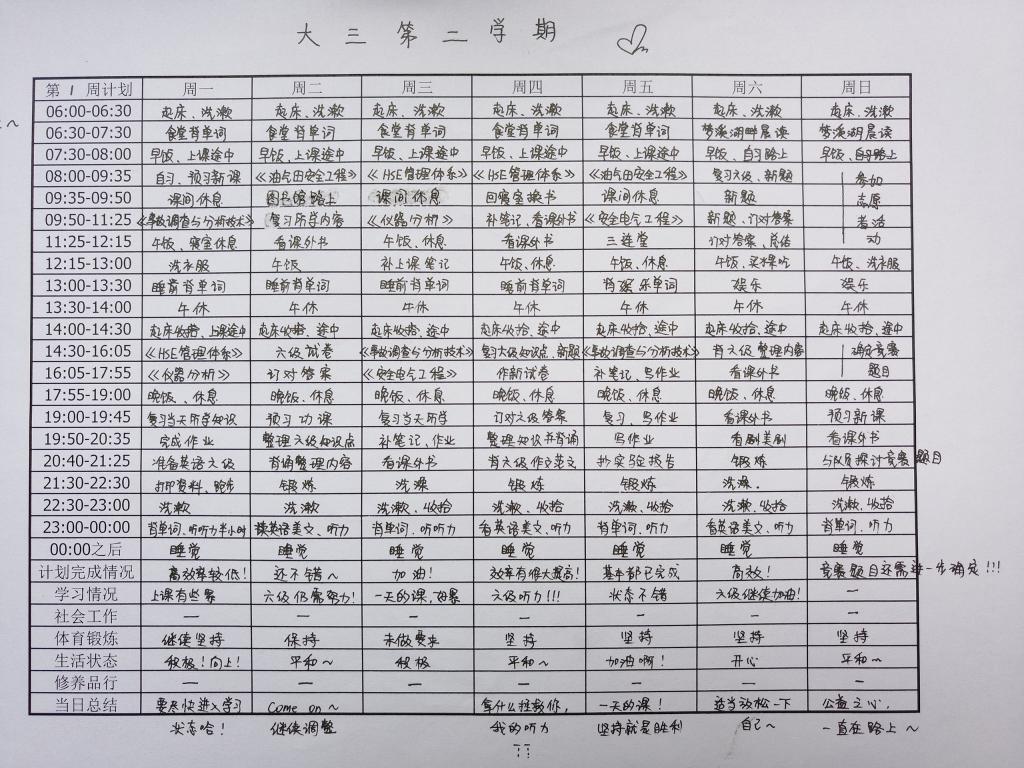 大三第二学期
第 1 周计划 周一 周二 周三 周四 周五 周六 周日
06:00-06:30 起床、洗漱 起床、洗漱 起床、洗漱 起床、洗漱 起床、洗漱 起床、洗漱 起床、洗漱
06:30-07:30 食堂背单词 食堂背单词 食堂背单词 食堂背单词 食堂背单词 梦溪湖畔晨读 梦溪湖晨读
07:30-08:00 早饭、上课途中 早饭、上课途中 早饭、上课途中 早饭、上课途中 早饭、上课途中 早饭、自习路上 早饭、自习路上
08:00-09:35 自习、预习新课 《油气田安全工程》 《HSE管理体系》 《HSE管理体系》 《油气田安全工程》 复习六级、新题 参加
09:35-09:50 课间休息 图书馆路上 课间休息 回寝室换书 课间休息 新题 志愿
09:50-11:25 《事故调查与分析技术》 复习所学内容 《仪器分析》 补笔记、看课外书 《安全电气工程》 新题、订对答案 者活
11:25-12:15 午饭、寝室休息 看课外书 午饭、休息 看课外书 三连堂 订对答案、总结 动
12:15-13:00 洗衣服 午饭 补上课笔记 午饭、休息 午饭、休息 午饭、买水果吃 午饭、洗衣服
13:00-13:30 睡前背单词 睡前背单词 睡前背单词 睡前背单词 背娱乐单词 娱乐 娱乐
13:30-14:00 午休 午休 午休 午休 午休 午休 午休
14:00-14:30 起床收拾、上课途中 起床收拾、途中 起床收拾、途中 起床收拾、途中 起床收拾、途中 起床收拾、途中 起床收拾、途中
14:30-16:05 《HSE管理体系》 六级试卷 《事故调查与分析技术》 复习六级知识点、新题 《事故调查与分析技术》 背六级整理内容 确定竞赛
16:05-17:55 《仪器分析》 订对答案 《安全电气工程》 作新试卷 补笔记、写作业 看课外书 题目
17:55-19:00 晚饭、休息 晚饭、休息 晚饭、休息 晚饭、休息 晚饭、休息 晚饭、休息 晚饭、休息
19:00-19:45 复习当天所学知识 预习功课 复习当天所学 订对六级答案 复习、写作业 看课外书 预习新课
19:50-20:35 完成作业 整理六级知识点 补笔记、作业 整理知识并背诵 写作业 看剧美剧 看课外书
20:40-21:25 准备英语六级 背诵整理内容 看课外书 背六级作文范文 抄实验报告 锻炼 与队员探讨竞赛题目
21:30-22:30 打印资料、跑步 锻炼 洗澡 锻炼 锻炼 洗澡. 锻炼
22:30-23:00 洗漱 洗漱、收拾 洗漱、收拾 洗漱、收拾 洗漱、收拾 洗漱、收拾 洗漱、收拾
23:00-00:00 背单词、听听力半小时 读英语美文、听力 背单词、听听力 看英语美文、听力 背单词、听力 看英语美文、听力 背单词、听力
00:00之后 睡觉 睡觉 睡觉 睡觉 睡觉 睡觉 睡觉
计划完成情况 高效率较低! 还不错~ 加油! 效率有很大提高! 基本都已完成 高效! 竞赛题目还需进一步确定!!!
学习情况 上课有些累 六级仍需努力! 一天的课, 六级听力!!! 状态不错 六级继续加油! —
社会工作 — — — — — — —
体育锻炼 继续坚持 保持 未做 坚持 坚持 坚持 坚持
生活状态 积极!向上! 平和~ 积极 平和~ 加油啊! 开心 平和~
修养品行 — — — — — — —
当日总结 要尽快进入学习 Come on~ 拿什么拯救你, 一天的课! 适当放松一下 公益之心,
状态哈! 继续调整 我的听力 坚持就是胜利 自己~ 一直在路上~